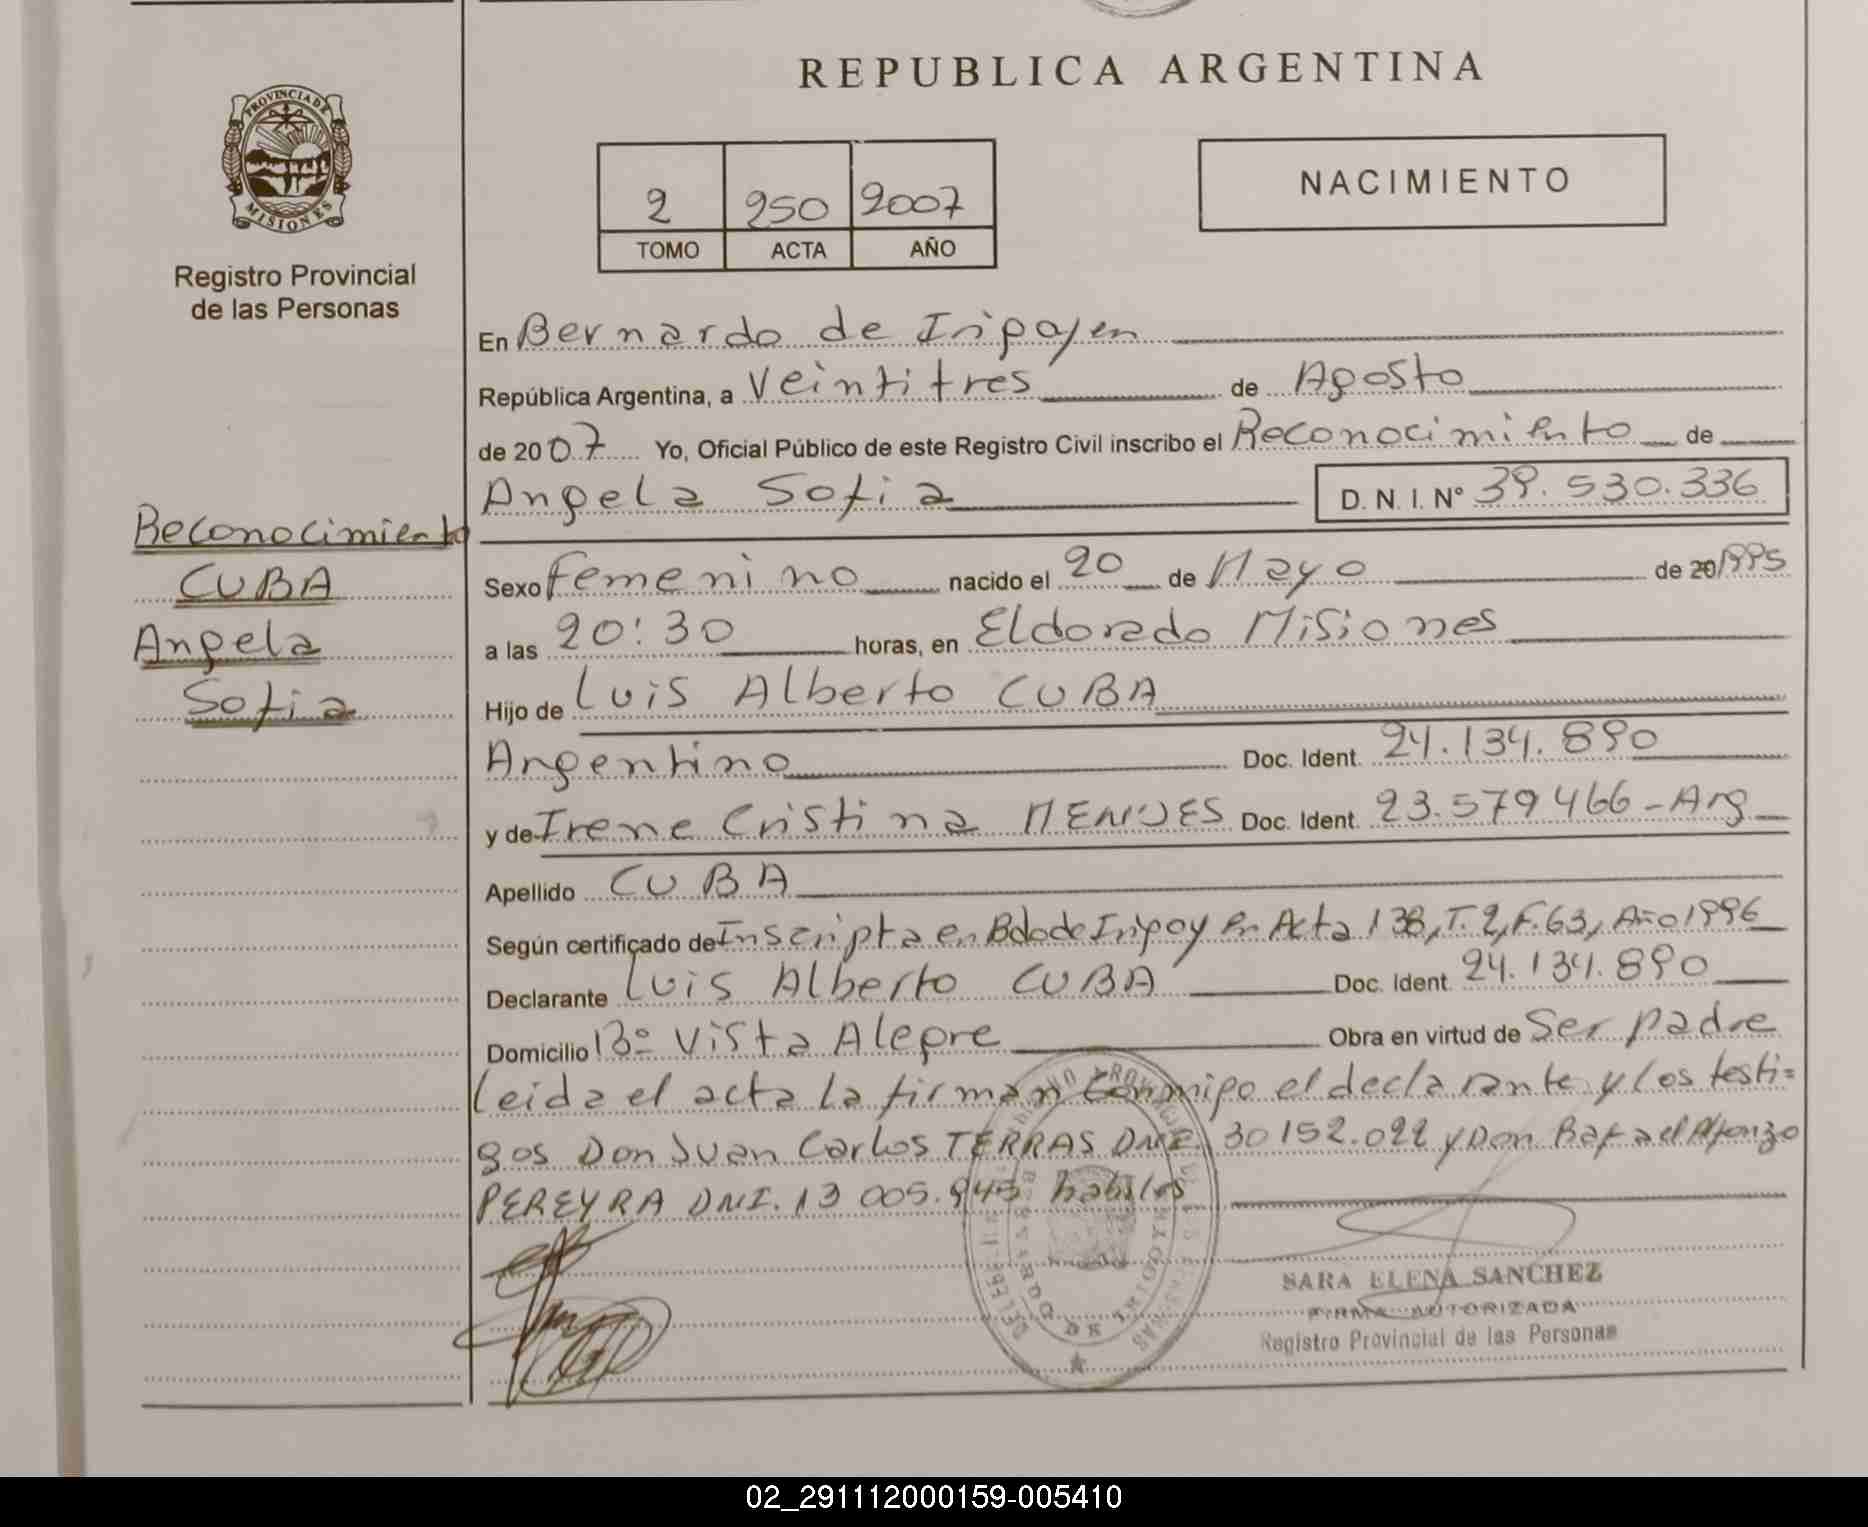 REPUBLICA ARGENTINA
PROVINCIA DE
MISIONES
Registro Provincial
de las Personas
2 250 2007
TOMO ACTA AÑO
NACIMIENTO
En Bernardo de Irigoyen
República Argentina, a Veintitres de Agosto
de 2007 Yo, Oficial Público de este Registro Civil inscribo el Reconocimiento de
Angela Sofia D. N. I. N° 39.530.336
Reconocimiento
CUBA
Angela
Sofia
Sexo Femenino nacido el 20 de Mayo de 20 1995
a las 20:30 horas, en Eldorado Misiones
Hijo de Luis Alberto CUBA
Argentino Doc. Ident. 24.134.890
y de Irene Cristina MENDES Doc. Ident. 23.579466-Arg
Apellido CUBA
Según certificado de Inscripta en Bdo de Irigoyen Acta 138, T.2, F.63, Año 1996
Declarante Luis Alberto CUBA Doc. Ident. 24.134.890
Domicilio Bº Vista Alegre Obra en virtud de Ser padre
Leida el acta la firman conmigo el declarante y los testi=
gos Don Juan Carlos TERRAS DNI. 30152.022 y Don Rafael Alfonzo
PEREYRA DNI. 13 005.945 habiles
SARA ELENA SANCHEZ
FIRMA AUTORIZADA
Registro Provincial de las Personas
02_291112000159-005410